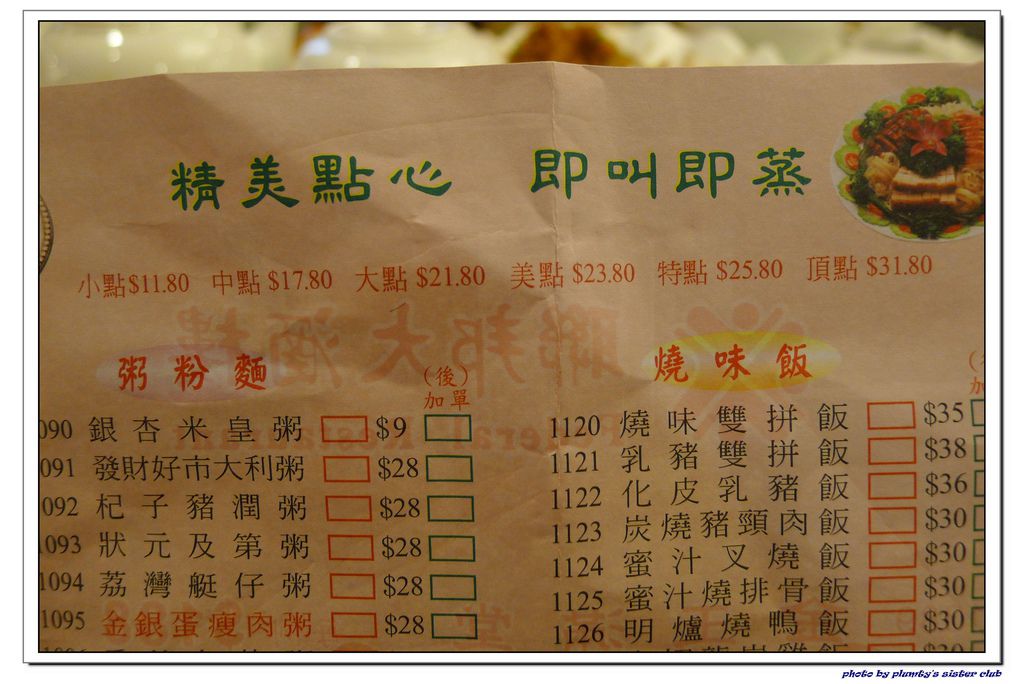 精美點心 即叫即蒸
小點$11.80 中點$17.80 大點$21.80 美點$23.80 特點$25.80 頂點$31.80
粥粉麵 (後)加單
090 銀杏米皇粥 $9
091 發財好市大利粥 $28
092 杞子豬潤粥 $28
1093 狀元及第粥 $28
1094 荔灣艇仔粥 $28
1095 金銀蛋瘦肉粥 $28
燒味飯
1120 燒味雙拼飯 $35
1121 乳豬雙拼飯 $38
1122 化皮乳豬飯 $36
1123 炭燒豬頸肉飯 $30
1124 蜜汁叉燒飯 $30
1125 蜜汁燒排骨飯 $30
1126 明爐燒鴨飯 $30
photo by plumty's sister club